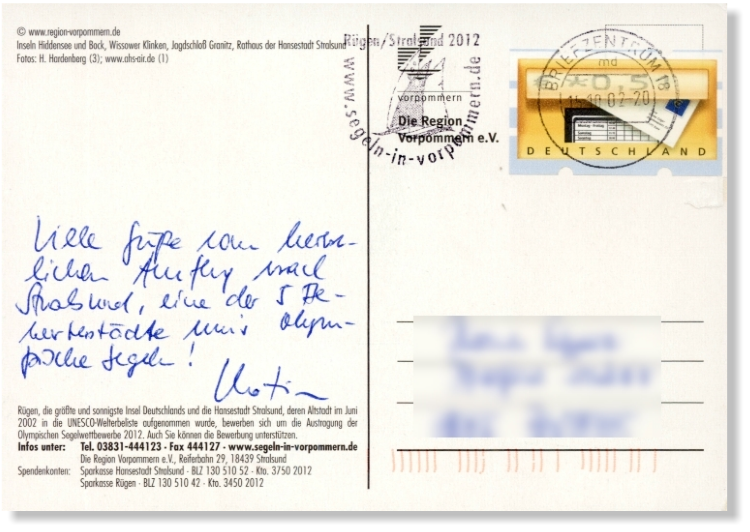 © www.region-vorpommern.de
Inseln Hiddensee und Bock, Wissower Klinken, Jagdschloß Granitz, Rathaus der Hansestadt Stralsund
Fotos: H. Hardenberg (3); www.ahs-air.de (1)
Rügen/Stralsund 2012
www.segeln-in-vorpommern.de
vorpommern
Die Region
Vorpommern e.V.
BRIEFZENTRUM 18
md
02-20
DEUTSCHLAND
Viele Grüße vom herbst-
lichen Ausflug nach
Stralsund, eine der 5 Be-
werberstädte fürs olym-
pische Segeln!
Rügen, die größte und sonnigste Insel Deutschlands und die Hansestadt Stralsund, deren Altstadt im Juni
2002 in die UNESCO-Welterbeliste aufgenommen wurde, bewerben sich um die Austragung der
Olympischen Segelwettbewerbe 2012. Auch Sie können die Bewerbung unterstützen.
Infos unter: Tel. 03831-444123 · Fax 444127 · www.segeln-in-vorpommern.de
Die Region Vorpommern e.V., Reiferbahn 29, 18439 Stralsund
Spendenkonten: Sparkasse Hansestadt Stralsund · BLZ 130 510 52 · Kto. 3750 2012
Sparkasse Rügen · BLZ 130 510 42 · Kto. 3450 2012